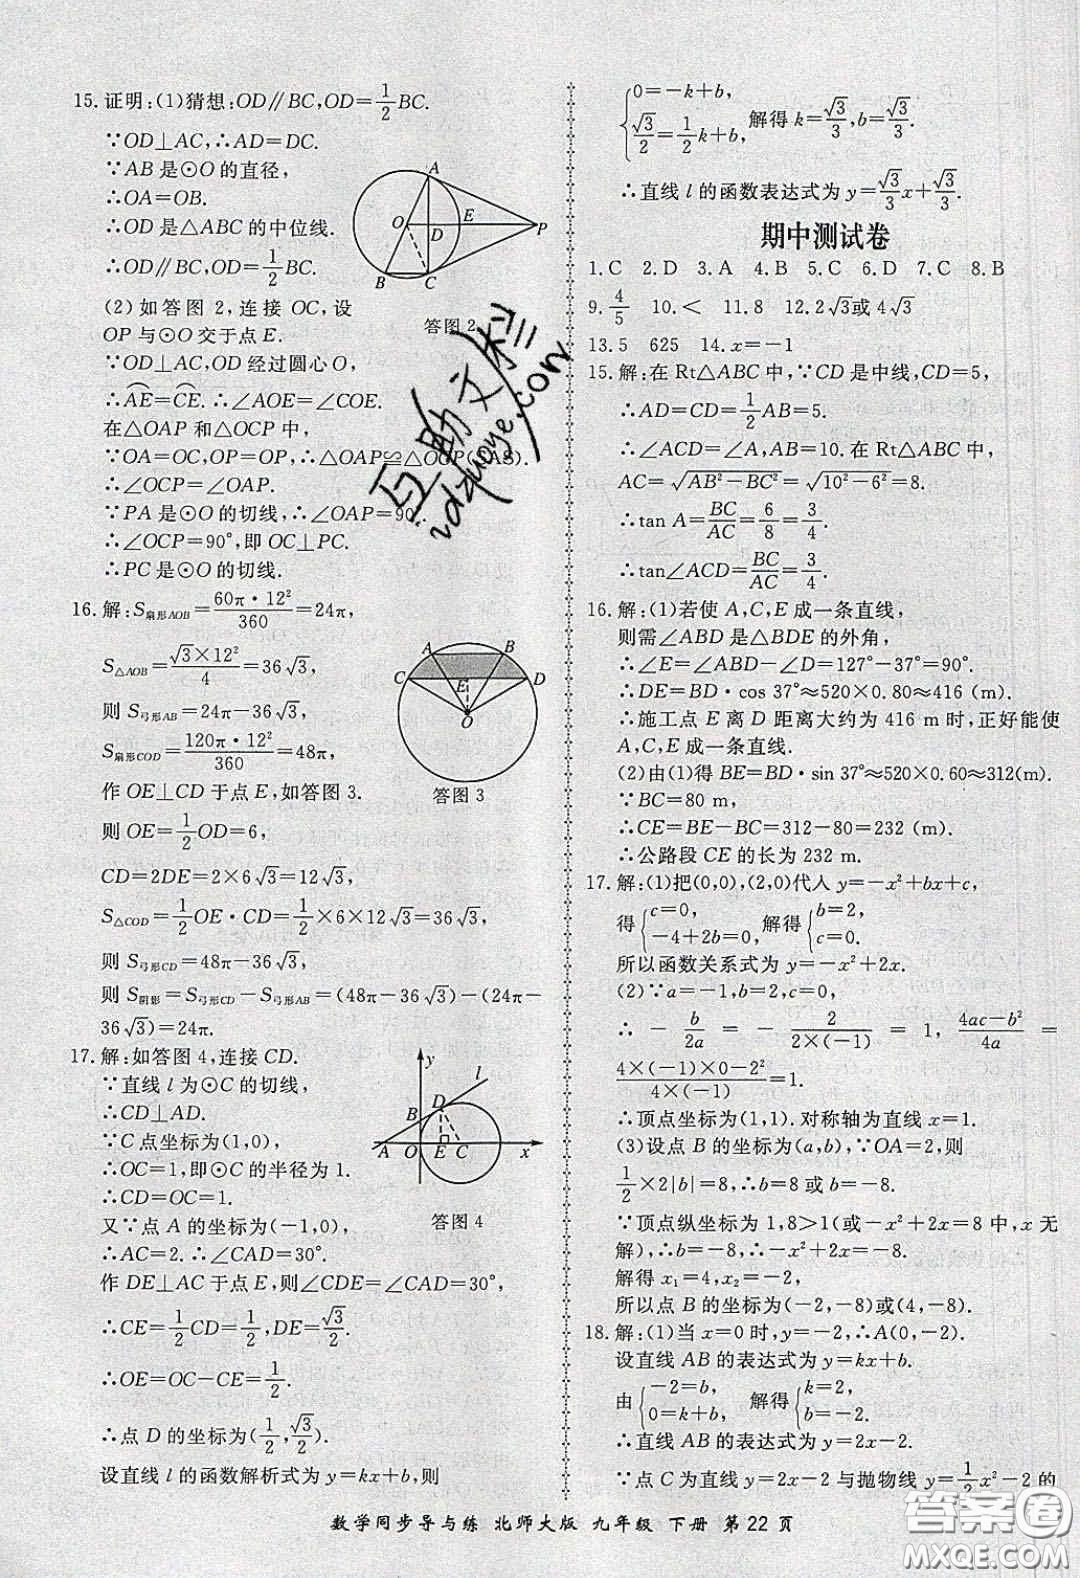 15. 证明:(1)猜想:OD∥BC,OD=1/2BC.
∵OD⊥AC,∴AD=DC.
∵AB是⊙O的直径,
∴OA=OB.
∴OD是△ABC的中位线.
∴OD∥BC,OD=1/2BC.
(2)如答图2,连接OC,设
OP与⊙O交于点E.
∵OD⊥AC,OD经过圆心O,
∴AE⌒=CE⌒.∴∠AOE=∠COE.
在△OAP和△OCP中,
∵OA=OC,OP=OP,∴△OAP≌△OCP(SAS).
∴∠OCP=∠OAP.
∵PA是⊙O的切线,∴∠OAP=90°.
∴∠OCP=90°,即OC⊥PC.
∴PC是⊙O的切线.
A
O
D
E
P
B
C
答图2
16. 解:S扇形AOB=60π·12²/360=24π,
S△AOB=√3×12²/4=36√3,
则S弓形AB=24π-36√3,
S扇形COD=120π·12²/360=48π,
作OE⊥CD于点E,如答图3.
则OE=1/2OD=6,
CD=2DE=2×6√3=12√3,
S△COD=1/2OE·CD=1/2×6×12√3=36√3,
则S弓形CD=48π-36√3,
则S阴影=S弓形CD-S弓形AB=(48π-36√3)-(24π-
36√3)=24π.
A
B
C
E
D
O
答图3
17. 解:如答图4,连接CD.
∵直线l为⊙C的切线,
∴CD⊥AD.
∵C点坐标为(1,0),
∴OC=1,即⊙C的半径为1.
∴CD=OC=1.
又∵点A的坐标为(-1,0),
∴AC=2.∴∠CAD=30°.
作DE⊥AC于点E,则∠CDE=∠CAD=30°,
∴CE=1/2CD=1/2,DE=√3/2.
∴OE=OC-CE=1/2.
∴点D的坐标为(1/2,√3/2).
设直线l的函数解析式为y=kx+b,则
y
l
D
B
A
O
E
C
x
答图4
{0=-k+b,
√3/2=1/2k+b, 解得k=√3/3,b=√3/3.
∴直线l的函数表达式为y=√3/3x+√3/3.
期中测试卷
1.C 2.D 3.A 4.B 5.C 6.D 7.C 8.B
9.4/5 10.< 11.8 12.2√3或4√3
13.5 625 14.x=-1
15. 解:在Rt△ABC中,∵CD是中线,CD=5,
∴AD=CD=1/2AB=5.
∴∠ACD=∠A,AB=10.在Rt△ABC中,
AC=√(AB²-BC²)=√(10²-6²)=8.
∴tan A=BC/AC=6/8=3/4.
∴tan∠ACD=BC/AC=3/4.
16. 解:(1)若使A,C,E成一条直线,
则需∠ABD是△BDE的外角,
∴∠E=∠ABD-∠D=127°-37°=90°.
∴DE=BD·cos 37°≈520×0.80≈416(m).
∴施工点E离D距离大约为416 m时,正好能使
A,C,E成一条直线.
(2)由(1)得BE=BD·sin 37°≈520×0.60≈312(m).
∵BC=80 m,
∴CE=BE-BC=312-80=232(m).
∴公路段CE的长为232 m.
17. 解:(1)把(0,0),(2,0)代人y=-x²+bx+c,
得{c=0,
-4+2b=0, 解得{b=2,
c=0.
所以函数关系式为y=-x²+2x.
(2)∵a=-1,b=2,c=0,
∴-b/2a=-2/2×(-1)=1,4ac-b²/4a=
4×(-1)×0-2²/4×(-1)=1.
∴顶点坐标为(1,1).对称轴为直线x=1.
(3)设点B的坐标为(a,b),∵OA=2,则
1/2×2|b|=8,∴b=8或b=-8.
∵顶点纵坐标为1,8>1(或-x²+2x=8中,x无
解),∴b=-8,∴-x²+2x=-8.
解得x₁=4,x₂=-2.
所以点B的坐标为(-2,-8)或(4,-8).
18. 解:(1)当x=0时,y=-2,∴A(0,-2).
设直线AB的表达式为y=kx+b.
由{-2=b,
0=k+b, 解得{k=2,
b=-2.
∴直线AB的表达式为y=2x-2.
∵点C为直线y=2x-2与抛物线y=1/2x²-2的
数学同步导与练 北师大版 九年级 下册 第22页
互助文栏
idzuoye.com
答案圈
MXQE.COM